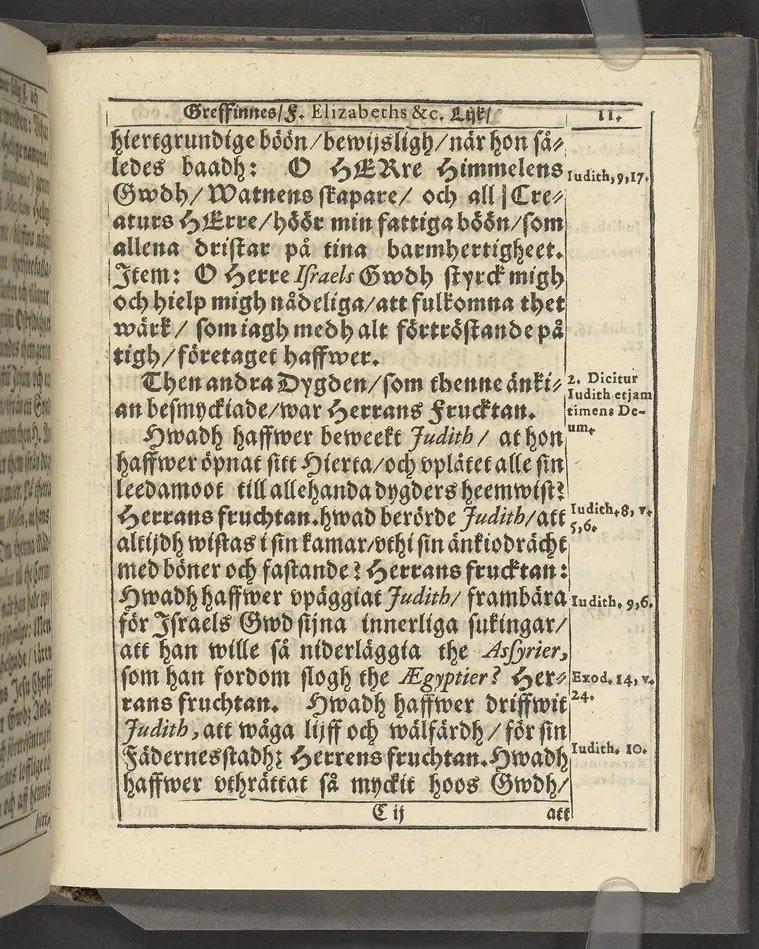 Greffinnes/ F. Elizabeths &c. Lijk/ 11.
hiertgrundige böön/ bewijsligh/ när hon så-
ledes baadh: O HERre Himmelens
Gwdh/ Watnens skapare/ och all Cre-
aturs HErre/ höör min fattiga böön/ som
allena dristar på tina barmhertigheet.
Item: O Herre Israels Gwdh styrck migh
och hielp migh nådeliga/ att fulkomna thet
wärk/ som iagh medh alt förtröstande på
tigh/ företaget haffwer.
Then andra Dygden/ som thenne änki-
an besmyckiade/ war Herrans Frucktan.
Hwadh haffwer beweekt Judith/ at hon
haffwer öpnat sitt Hierta/ och vplåtet alle sin
leedamoot till allehanda dygders heemwist?
Herrans fruchtan. hwad berörde Judith/ att
altijdh wistas i sin kamar/ vthi sin änkiodrächt
med böner och fastande? Herrans frucktan:
Hwadh haffwer vpäggiat Judith/ frambära
för Israels Gwd sijna innerliga suckingar/
att han wille så niderläggia the Assyrier,
som han fordom slogh the Ægyptier? Her-
rans fruchtan. Hwadh haffwer driffwit
Judith, att wåga lijff och wälfärdh/ för sin
Fädernesstadh? Herrens fruchtan. Hwadh
haffwer vthrättat så myckit hoos Gwdh/
C ij att
Iudith, 9, 17.
2. Dicitur
Iudith etjam
timens De-
um.
Iudith. 8, v.
5, 6.
Iudith. 9, 6.
Exod. 14, v.
24.
Iudith. 10.